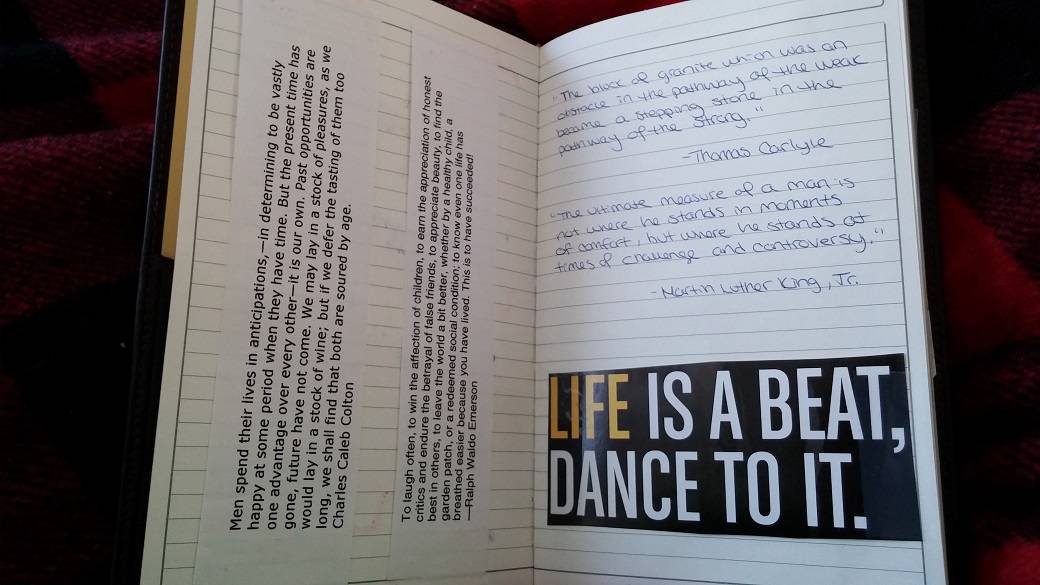 Men spend their lives in anticipations,—in determining to be vastly
happy at some period when they have time. But the present time has
one advantage over every other—it is our own. Past opportunities are
gone, future have not come. We may lay in a stock of pleasures, as we
would lay in a stock of wine; but if we defer the tasting of them too
long, we shall find that both are soured by age.
Charles Caleb Colton
To laugh often, to win the affection of children, to earn the appreciation of honest
critics and endure the betrayal of false friends, to appreciate beauty, to find the
best in others, to leave the world a bit better, whether by a healthy child, a
garden patch, or a redeemed social condition; to know even one life has
breathed easier because you have lived. This is to have succeeded!
—Ralph Waldo Emerson
"The block of granite which was an
obstacle in the pathway of the weak
became a stepping stone in the
pathway of the strong."
-Thomas Carlyle
"The ultimate measure of a man is
not where he stands in moments
of comfort, but where he stands at
times of challenge and controversy."
-Martin Luther King, Jr.
LIFE IS A BEAT,
DANCE TO IT.